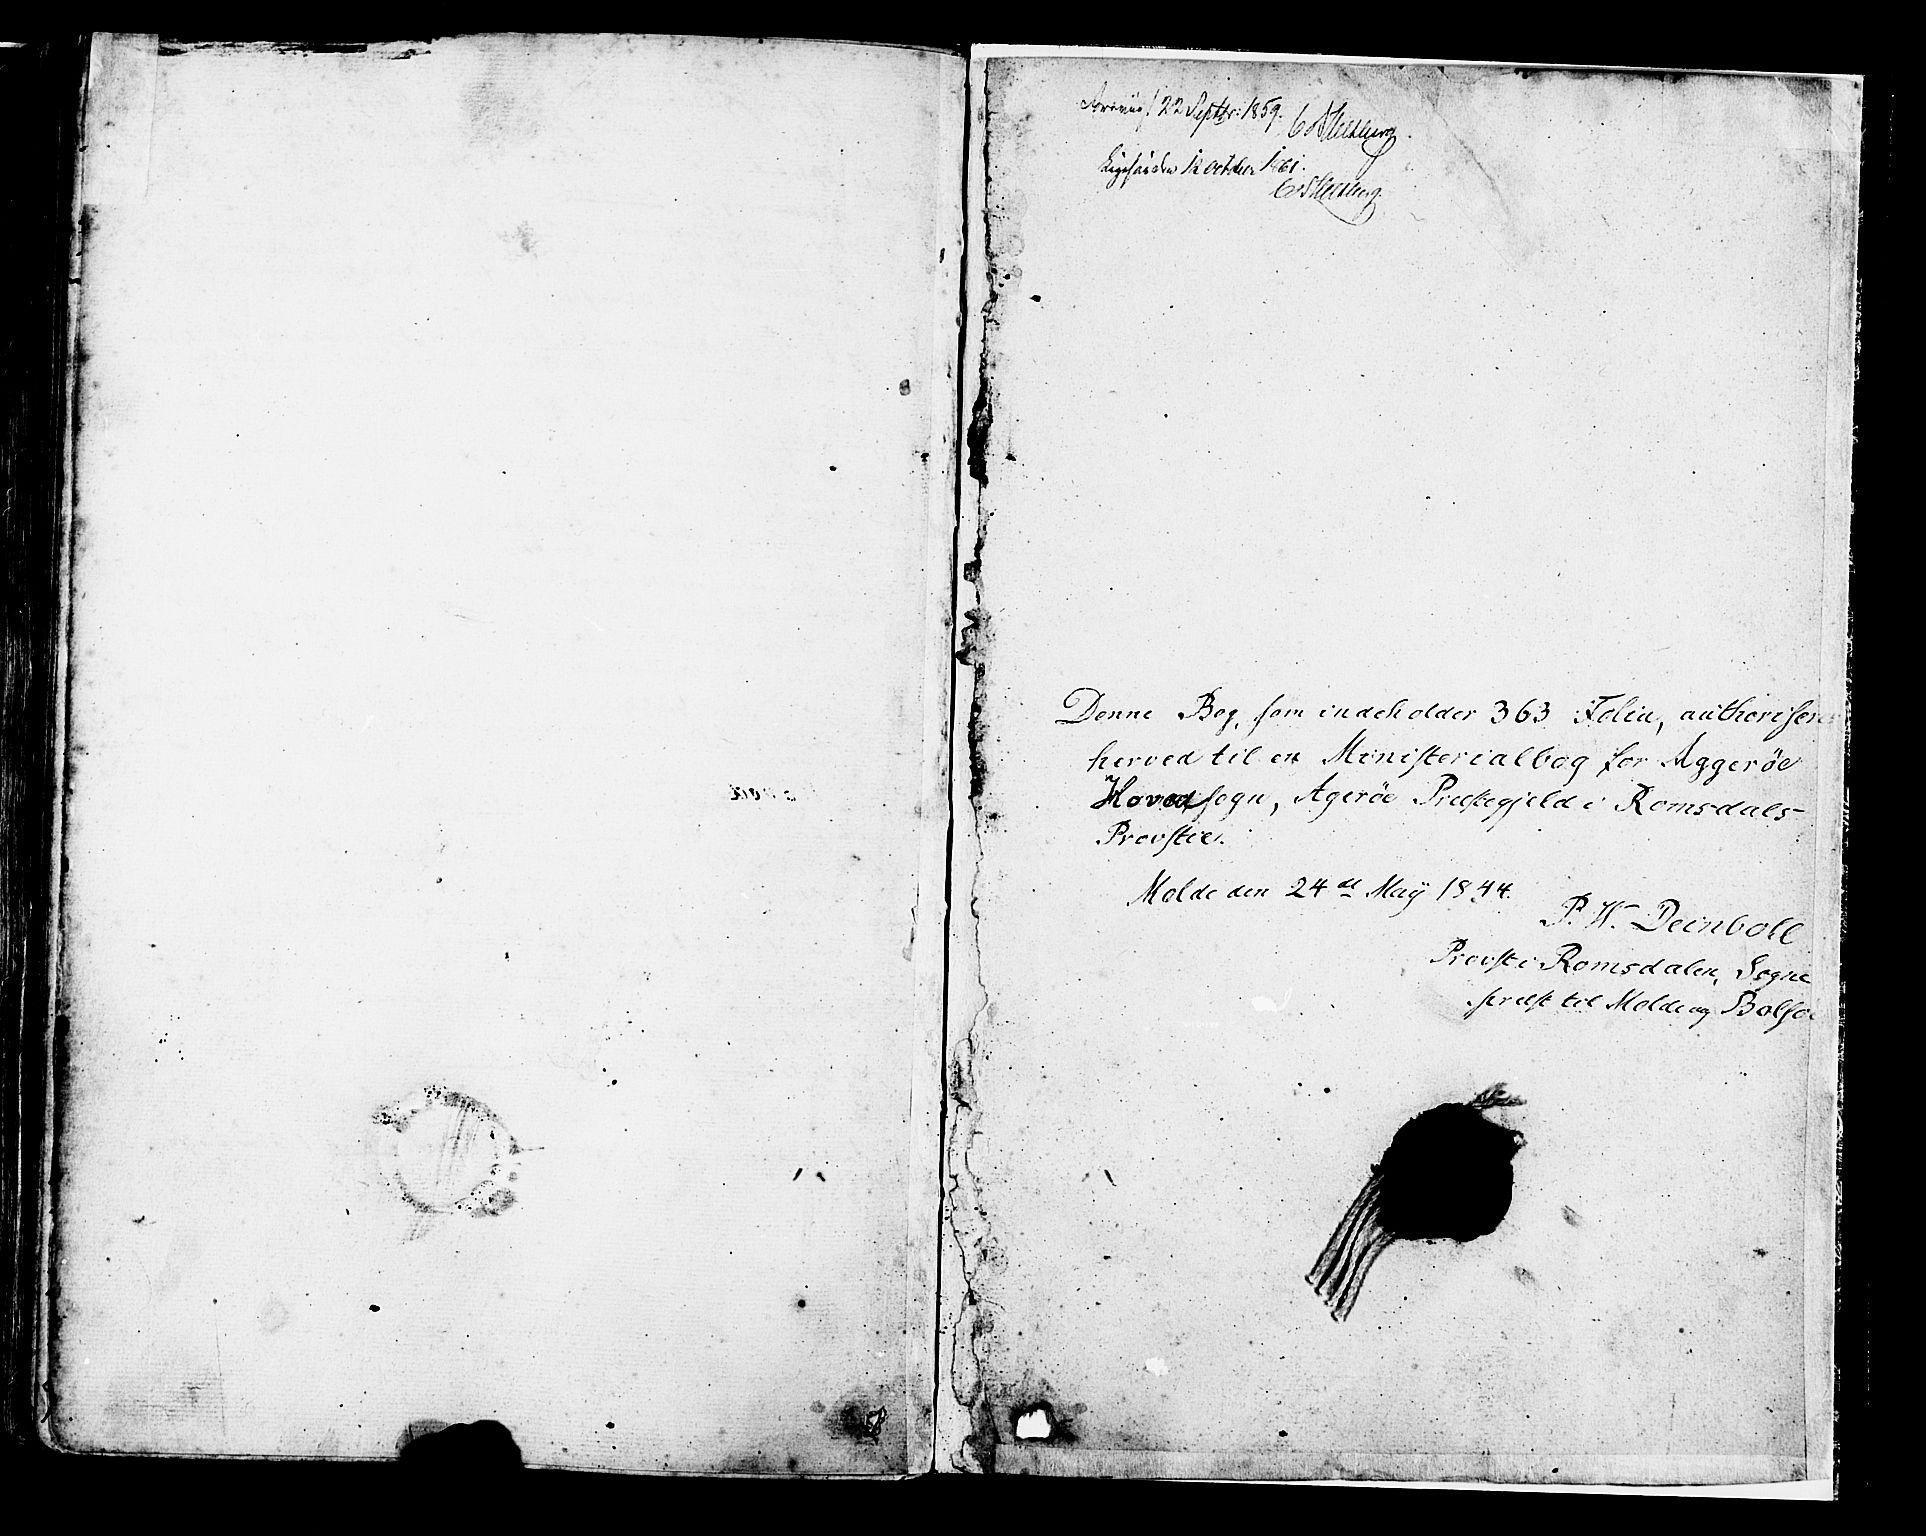 22 Septbr. 1859.
12 October 1861.
Denne Bog, som indeholder 363 Folier, authoriseres
herved til en Ministerialbog for Aggerøe
Hovedsogn, Agerøe Præstegjeld i Romsdals-
Provstie.
Molde den 24de Maÿ 1844.
P. W. Deinboll
Provst i Romsdalen, Sogne
præst til Molde og Bolsøe